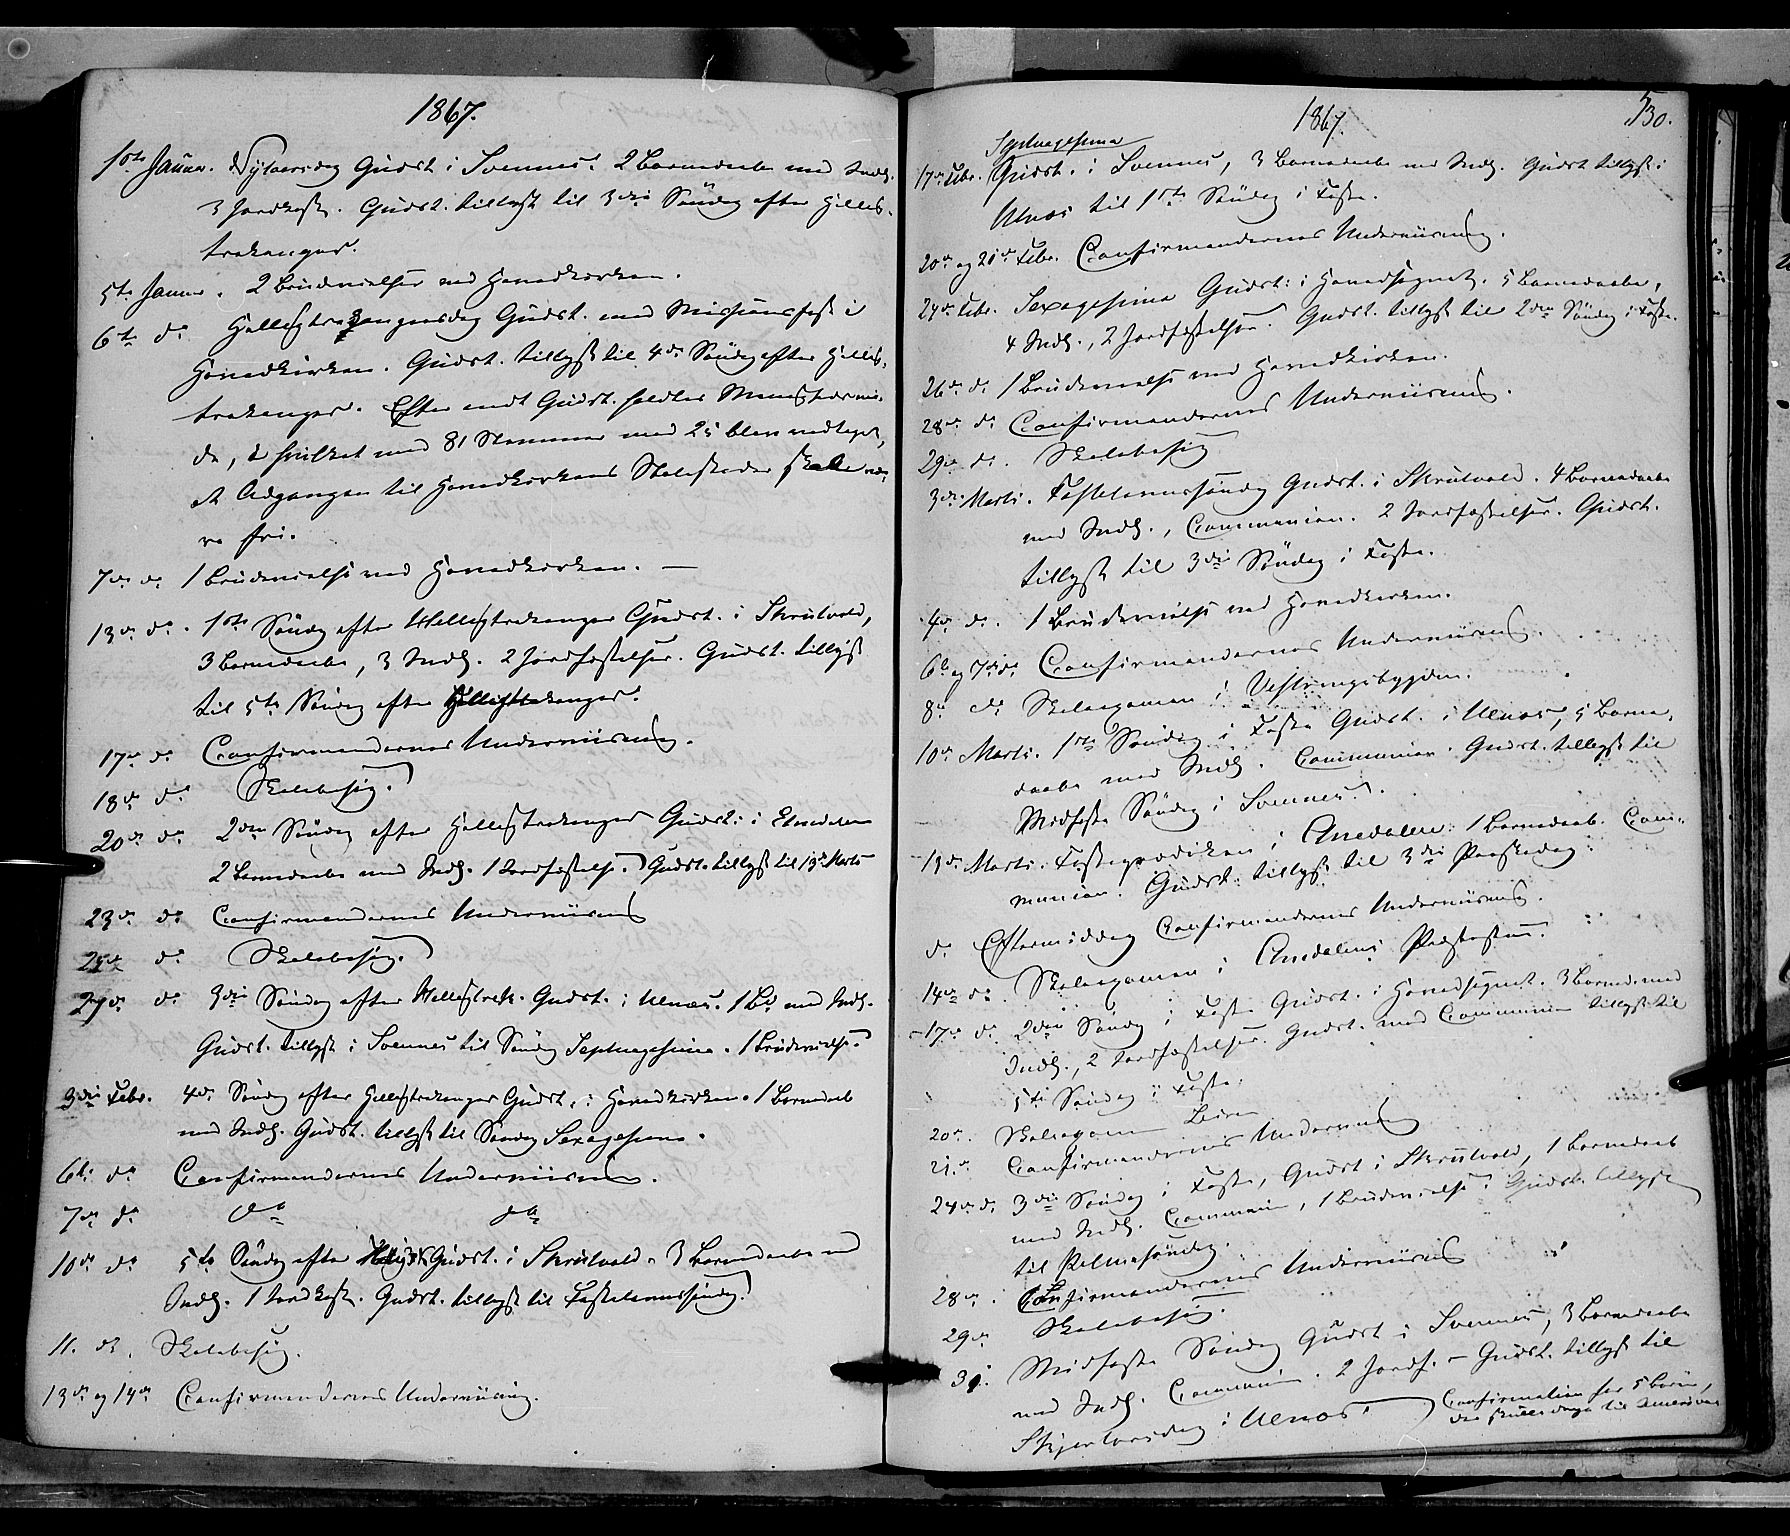 1867.
1ste Januar. Nytaarsdag Gudst. i Svennes. 2 Barnedaab med Indl.
3 Jordkast. Gudst. tillyst til 3die Søndag efter Hellig-
trekonger.
5te Januar. 2 Brudevielser ved Hovedkirken.
6te do Helligtrekongersdag Gudst. med Missionsfest i
Hovedkirken. Gudst. tillyst til 4de Søndag efter Hellig-
trekonger. Efter endt Gudst. holdtes
de, i hvilket med 81 Stemmer mod 25 blev vedtaget,
at Adgangen til Hovedkirkens Stolestader skulde væ-
re fri.
7de do 1 Brudevielse ved Hovedkirken. —
13de do. 1ste Søndag efter Helligtrekonger Gudst. i Skrutvold,
3 Barnedaab, 3 Indl. 2 Jordfæstelser. Gudst. tillyst
til 5te Søndag efter Helligtrekonger.
17de do Confirmandernes Underviisning.
18de do Skolebesøg.
20de do 2den Søndag efter Helligtrekonger Gudst. i
2 Barnedaab med Indl. 1 Jordfæstelse. Gudst. tillyst til 13de Marts
23de do Confirmandernes Underviisning
do Skolebesøg.
27de do 3die Søndag efter Helligtrek. Gudst. i Ulnæs. 1 Bd med Indl.
Gudst. tillyst i Svennes til Søndag Septuagesima. 1 Brudevielse.
3die Febr. 4de Søndag efter Helligtrekonger Gudst. i Hovedkirken. 1 Barnedaab
med Indl. Gudst. tillyst til Søndag Sexagesima.
6te do Confirmandernes Underviisning.
7de do do do
10de do 5te Søndag efter Gudst. i Skrutvold. 3 Barnedaab med
Indl. 1 Jordkast. Gudst. tillyst til Fastelavnssøndag.
11. do. Skolebesøg.
13de og 14de Confirmandernes Underviisning.
1867.
530.
Septuagesima
17de Febr. Gudst. i Svennes, 3 Barnedaab med Indl. Gudst. tillyst i
Ulnæs til 1ste Søndag i Faste.
20de og 21de Febr. Confirmandernes Underviisning.
24de Febr. Sexagesima Gudst. i Hovedsognet. 5 Barnedaab,
4 Indl., 2 Jordfæstelser. Gudst. tillyst til 2den Søndag i Faste.
26de do 1 Brudevielse ved Hovedkirken.
28de do Confirmandernes Underviisning.
29de do. Skolebesøg
3die Marts. Fastelavnssøndag Gudst. i Skrutvold. 4 Barnedaab
med Indl., Communion. 2 Jordfæstelser. Gudst.
tillyst til 3die Søndag i Faste.
4de do. 1 Brudevielse ved Hovedkirken.
6te og 7de do. Confirmandernes Underviisning.
8de do Skoleexamen i Vestringsbygden.
10de Marts. 1ste Søndag i Faste Gudst. i Ulnæs, 5 Barne-
daab med Indl. Communion. Gudst. tillyst til
Midfaste Søndag i Svennes.
13de Marts. Fasteprædiken i Aurdalen. 1 Barnedaab. Com-
munion. Gudst. tillyst til 3die Paaskedag.
do Eftermiddag Confirmandernes Underviisning.
14de do Skoleexamen i Aurdalens
17de do 2den Søndag i Faste Gudst. i Hovedsognet. 3 Barned. med
Indl., 2 Jordfæstelser. Gudst. med Communion tillyst til
5te Søndag i Faste.
20de. Skoleexamen
21de Confirmandernes Underviisning
24de do 3die Søndag i Faste, Gudst. i Skrutvold, 1 Barnedaab
med Indl. Communion, 1 Brudevielse. Gudst. tillyst
til Palmesøndag.
28de. Confirmandernes Underviisning
29de Skolebesøg.
31. Midfaste Søndag Gudst. i Svennes, 3 Barnedaab
med Indl. Communion. 2 Jordf. – Gudst. tillyst til
Skjertorsdag i Ulnæs. Confirmation for 5 Børn,
der skulle drage til Amerika